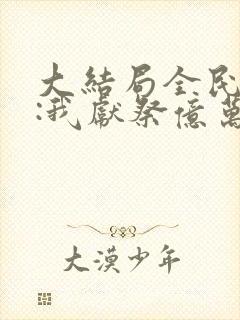 大結局全民
:我獻祭億萬
大漠少年